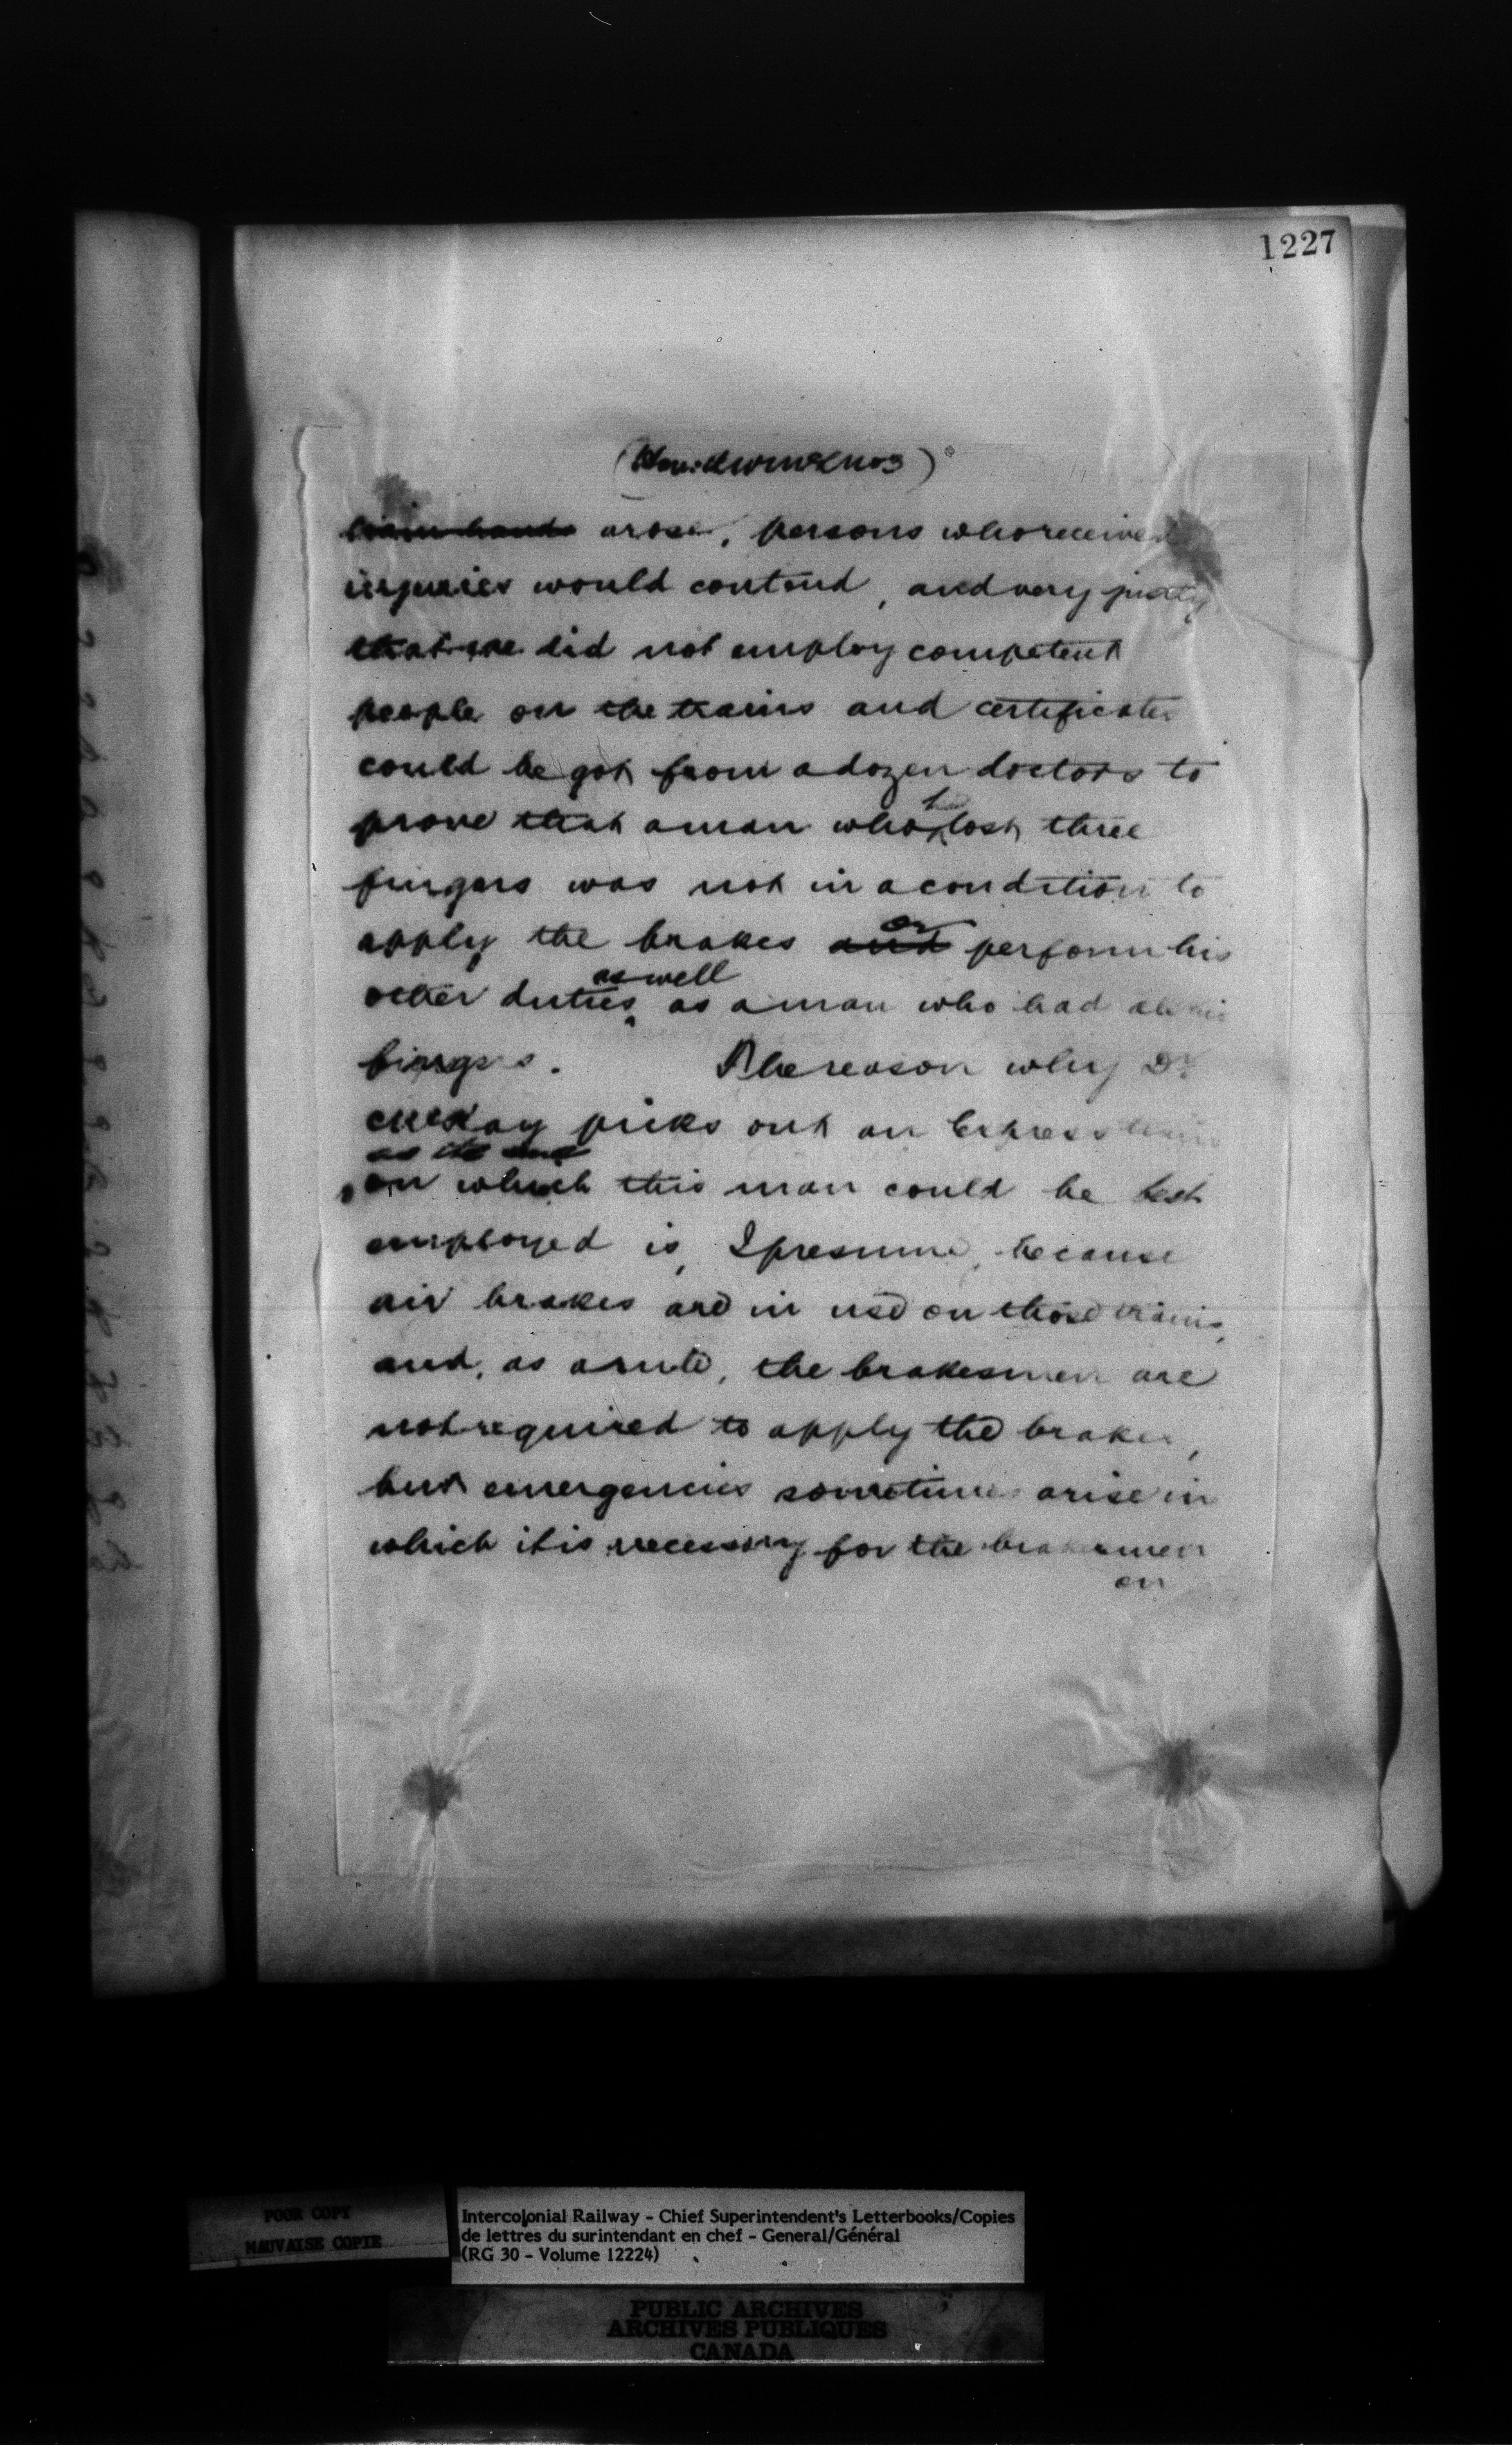 1227
train hands arose, persons who received
injuries would contend, and very justly
that we did not employ competent
people on the trains and certificates
could be got from a dozen doctors to
prove that a man who lost three
fingers was not in a condition to
or
apply the brakes and perform his
as well
other duties as a man who had all his
fingers. The reason why Dr
McKay picks out an Express train
as the one
on which this man could be best
employed is, I presume, because
air brakes are in use on those trains,
and, as a rule, the brakesmen are
not required to apply the brakes,
but emergencies sometimes arise in
which it is necessary for the brakesmen
on
POOR COPY
MAUVAISE COPIE
Intercolonial Railway - Chief Superintendent's Letterbooks/Copies
de lettres du surintendant en chef - General/Général
(RG 30 - Volume 12224)
PUBLIC ARCHIVES
ARCHIVES PUBLIQUES
CANADA